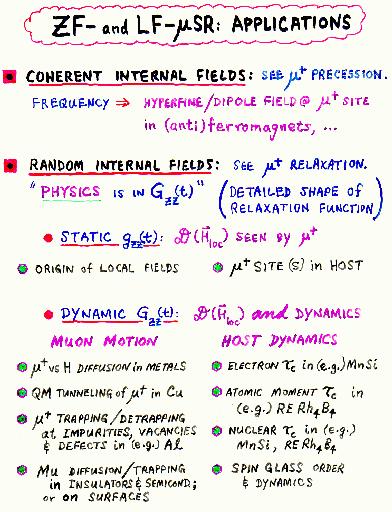 ZF- and LF-μSR: APPLICATIONS
COHERENT INTERNAL FIELDS: SEE μ⁺ PRECESSION.
FREQUENCY ⇒ HYPERFINE/DIPOLE FIELD @ μ⁺ SITE
in (anti)ferromagnets, ...
RANDOM INTERNAL FIELDS: SEE μ⁺ RELAXATION.
"PHYSICS IS IN G_zz(t)" (DETAILED SHAPE of RELAXATION FUNCTION)
STATIC g_zz(t): 𝒟(H⃗_loc) SEEN BY μ⁺
ORIGIN of LOCAL FIELDS
μ⁺ SITE(S) in HOST
DYNAMIC G_zz(t): 𝒟(H⃗_loc) and DYNAMICS
MUON MOTION
μ⁺ vs H DIFFUSION in METALS
QM TUNNELING of μ⁺ in Cu
μ⁺ TRAPPING/DETRAPPING
at IMPURITIES, VACANCIES
& DEFECTS in (e.g.) Al
Mu DIFFUSION/TRAPPING
in INSULATORS & SEMICOND;
or on SURFACES
HOST DYNAMICS
ELECTRON τ_c in (e.g.) MnSi
ATOMIC MOMENT τ_c in
(e.g.) RERh₄B₄
NUCLEAR τ_c in (e.g.)
MnSi, RERh₄B₄
SPIN GLASS ORDER
& DYNAMICS